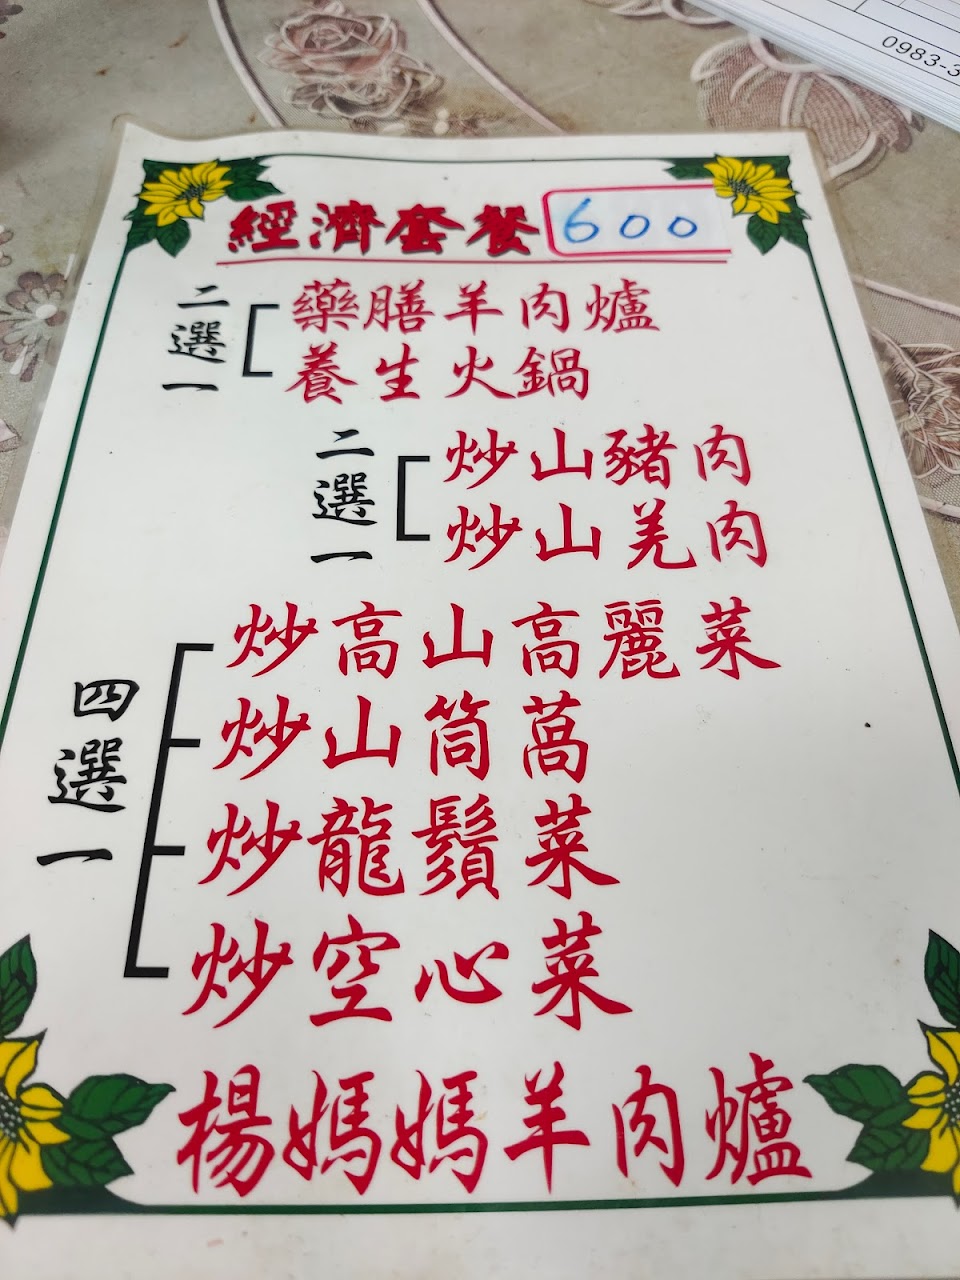 0983-3
經濟套餐 600
二選一
藥膳羊肉爐
養生火鍋
二選一
炒山豬肉
炒山羌肉
四選一
炒高山高麗菜
炒山筒萵
炒龍鬚菜
炒空心菜
楊媽媽羊肉爐